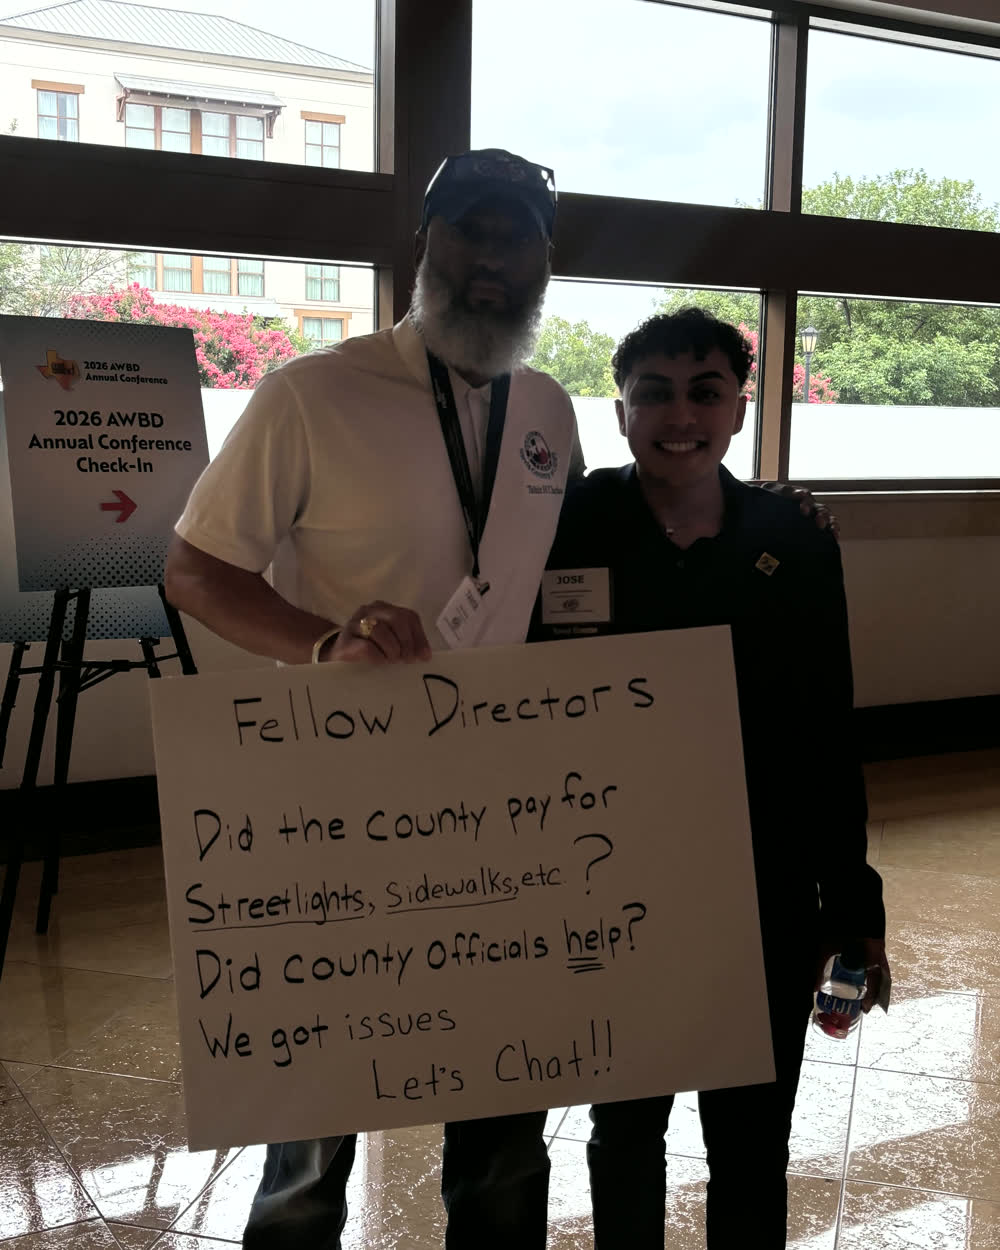 2026 AWBD
Annual Conference
2026 AWBD
Annual Conference
Check-In
JOSE
FIJI
Fellow Directors
Did the county pay for
Streetlights, Sidewalks, etc. ?
Did county officials help?
We got issues
Let's Chat!!